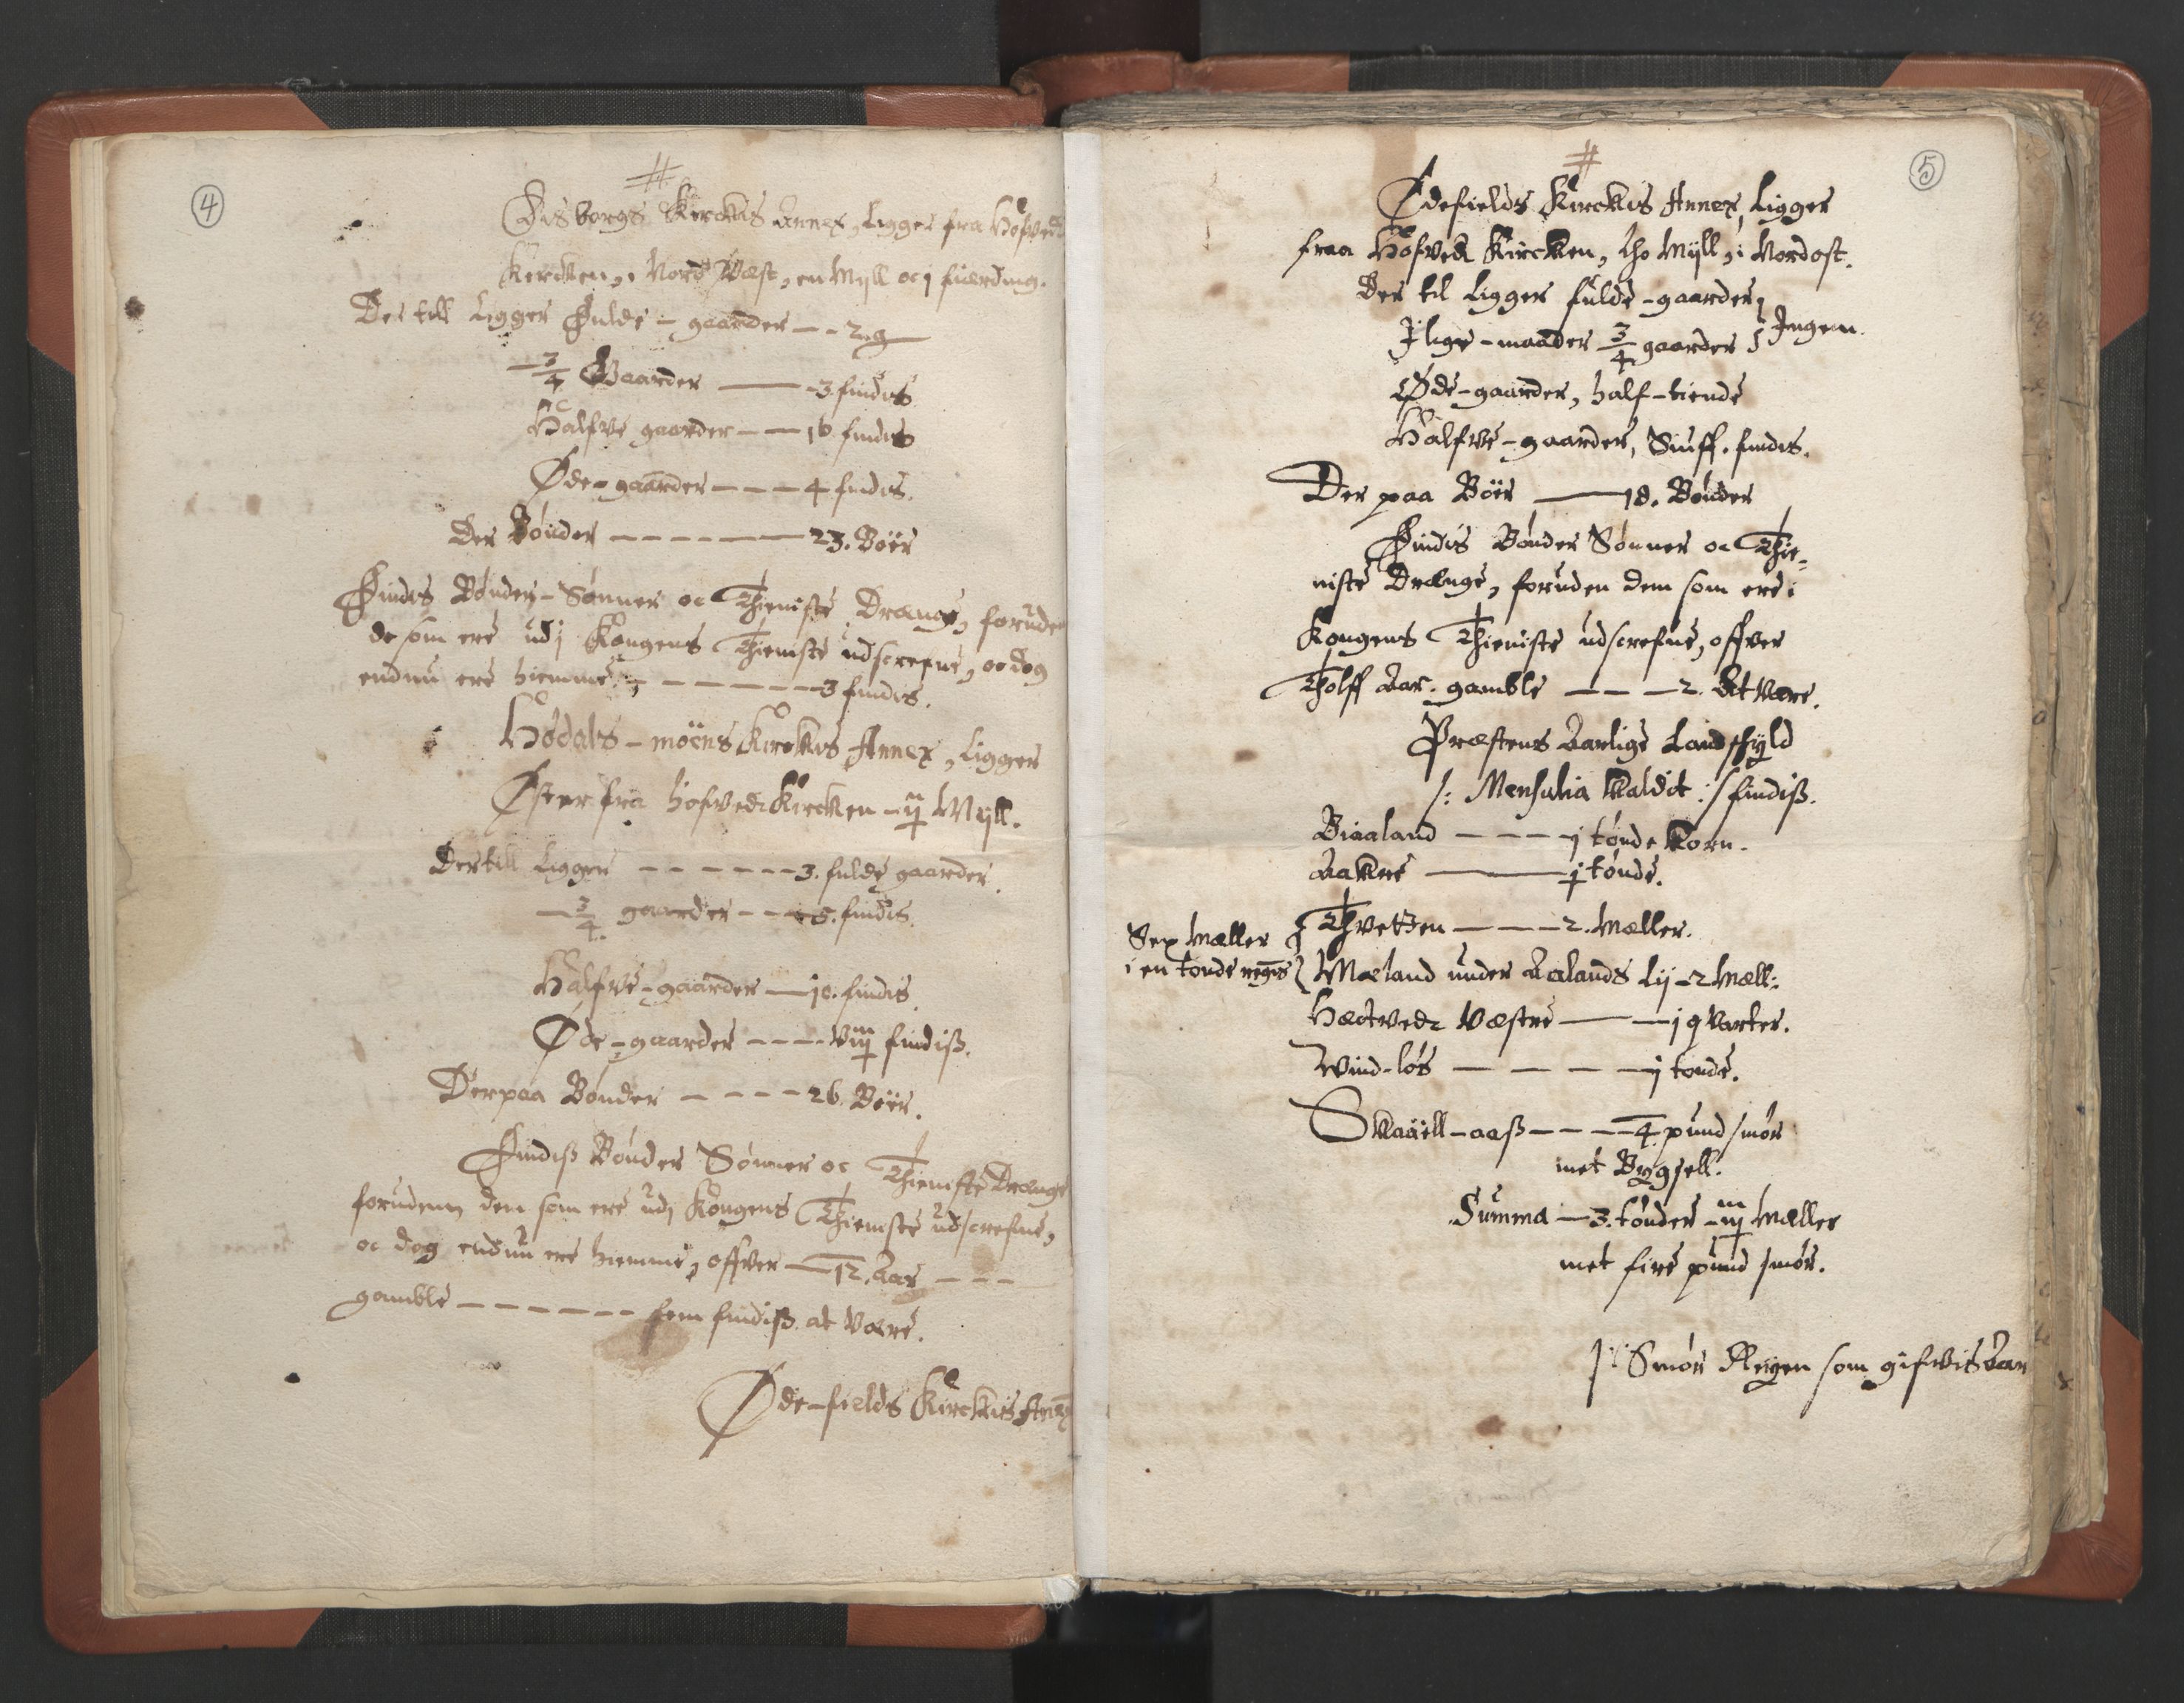 4
Disborgs Kirckis Annex, Ligger fra Hofved
Kircken, i Nord Væst, en Mijll oc j fierding.
Der till Ligger Fulde-gaarder – – 2
3/4 Gaarder —— 3. findis
Halfve gaarder – — 16 findis
Øde-gaarder – – — 4 findis.
Der Bønder – – – – – — 23. Boer
Findis Bønder-Sønner oc Thieniste Drænge, foruden
de som ere udj Kongens Thieniste udscrefne, oc dog
endnu ere hiemme – – – – – — 3 findis.
Hødals-möens Kirckis Annex, Ligger
Øster fra hofved Kircken – ij Mijll.
Dertill Ligger – – – – – – 3. fulde gaarder.
3/4 gaarder – – – 5. findis.
Halfve-gaarder — 10. findis.
Øde-gaarder – – – – viij findiß.
Derpaa Bønder – – – – 26. Boer.
Findiß Bønder Sønner oc Thieniste Drænge
foruden dem som ere udj Kongens Thieniste udscrefne,
oc dog endnu ere hiemme, offver — 12. Aar – – –
gamble – – – – – – – fem findiß at være.
Øde-fields Kirckis Annex
5
Ødefields Kirckis Annex, Ligger
fraa Hofved Kircken, tho Mijll, i Nordost.
Der til Ligger fulde-gaarder
J lige-maader 3/4 gaarder } Ingen.
Øde-gaarder, half-tiende
Halfve-gaarder, Siuff. findis.
Der paa Boer —— 18. Bønder
Findis Bønder Sønner oc Thie-
niste Drænge, foruden dem som ere i
Kongens Thieniste udscrefne, offver
Tholff Aar. gamble — — — 2. At være.
Præstens Aarlige Landskyld
/: Mensalia kaldit :/ findiß.
Biaaland – – – — j tønde korn.
Aakre ——— j tønde.
Sex Mæller
i en tønde regnis
Thvetten — — — 2. Mæller.
Mæland under Aalands Lij – 2 Mæll:
Hædtvedt Væstre —— j qvarter.
Wind-løs — — — — j tønde.
Skaaell-aaß – – – — 4. pund smør
met Bygsell.
Summa — 3. tønder – iij Mæller
met fire pund smør.
/: Smør Reyen som gifvis Aar